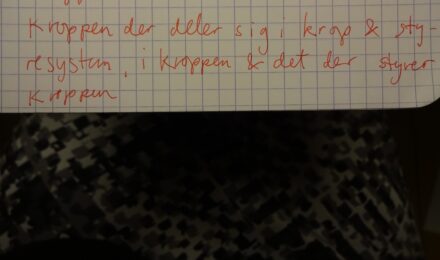 Kroppen der deler sig i krop & sty-
resystem, i kroppen & det der styrer
kroppen